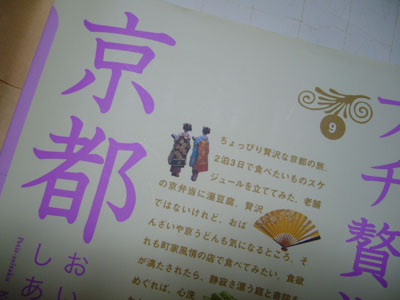 京都
プチ贅
9
ちょっぴり贅沢な京都の旅。
2泊3日で食べたいものスケ
ジュールを立ててみた。老舗
の京弁当に湯豆腐。贅沢
ではないけれど、おば
んざいや京うどんも気になるところ。そ
れも町家風情の店で食べてみたい。食欲
が満たされたら、静寂さ漂う庭と
めぐれば、心洗
おい
しあ